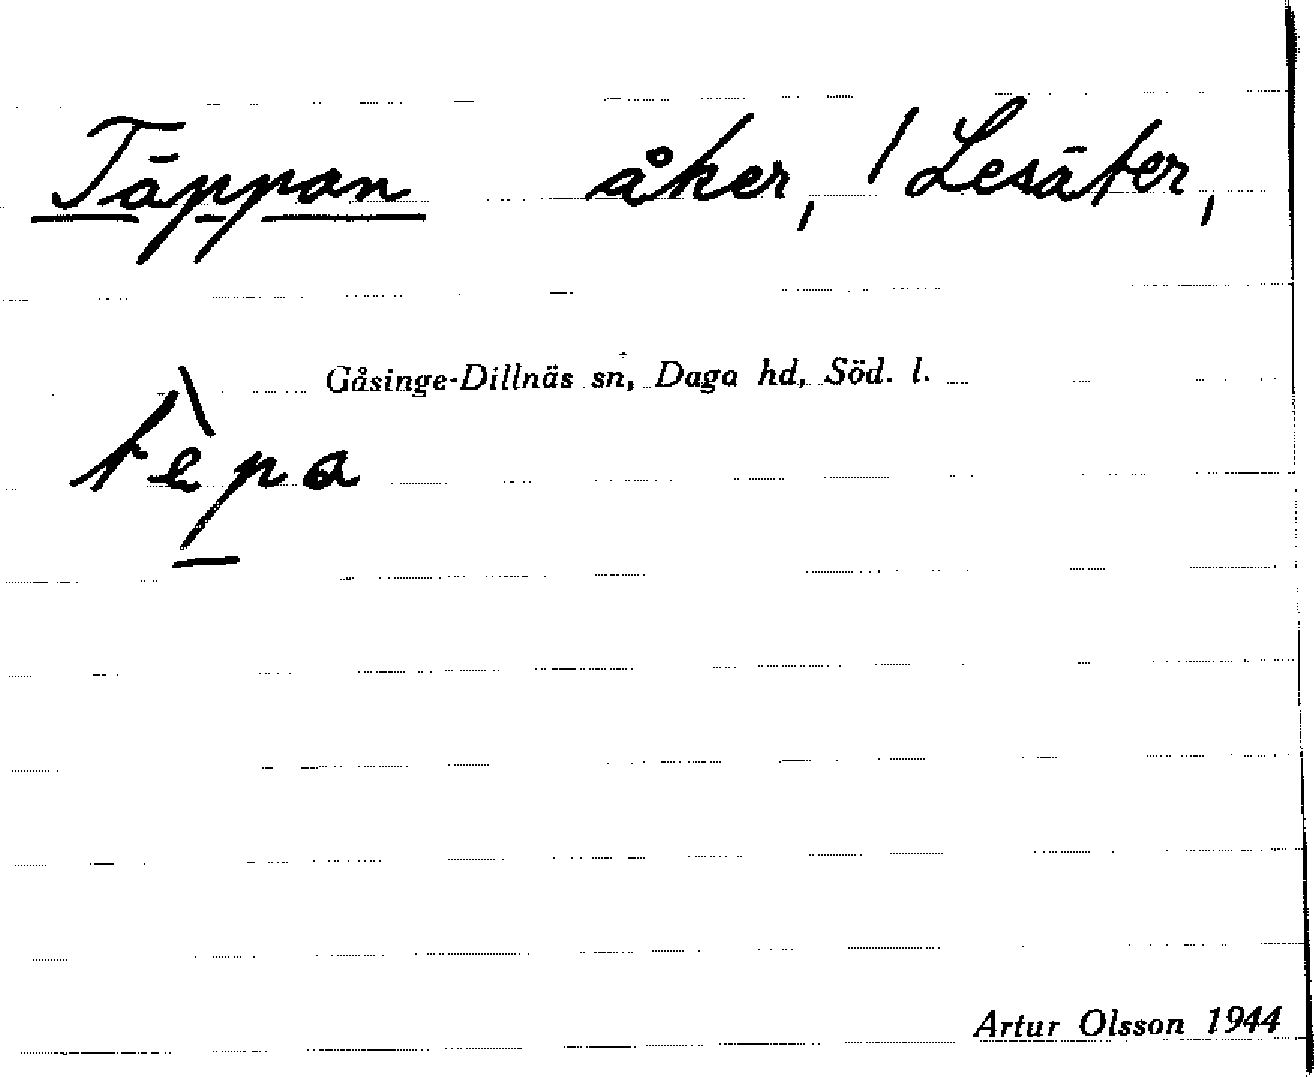 Täppan åker, / Lesäter,
Gåsinge-Dillnäs sn, Daga hd, Söd. l.
tèpa
Artur Olsson 1944